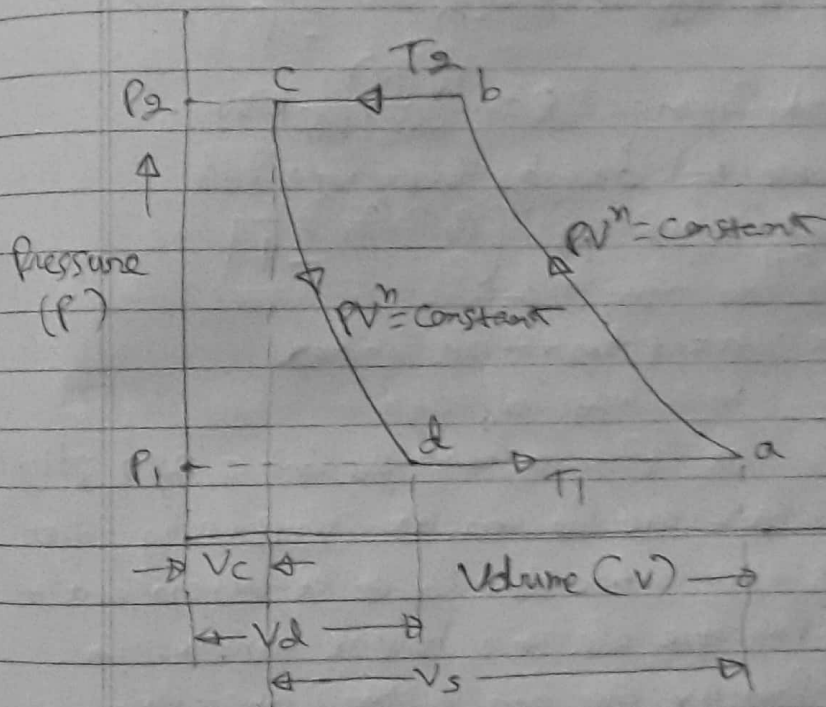 T2
P2
c
b
Pressure
(P)
PVⁿ=Constant
PVⁿ=Constant
d
P1
a
T1
Vc
Volume (V)
Vd
Vs